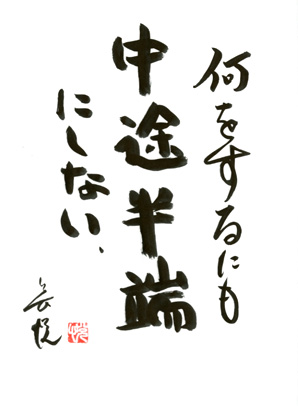 何をするにも
中途半端
にしない、